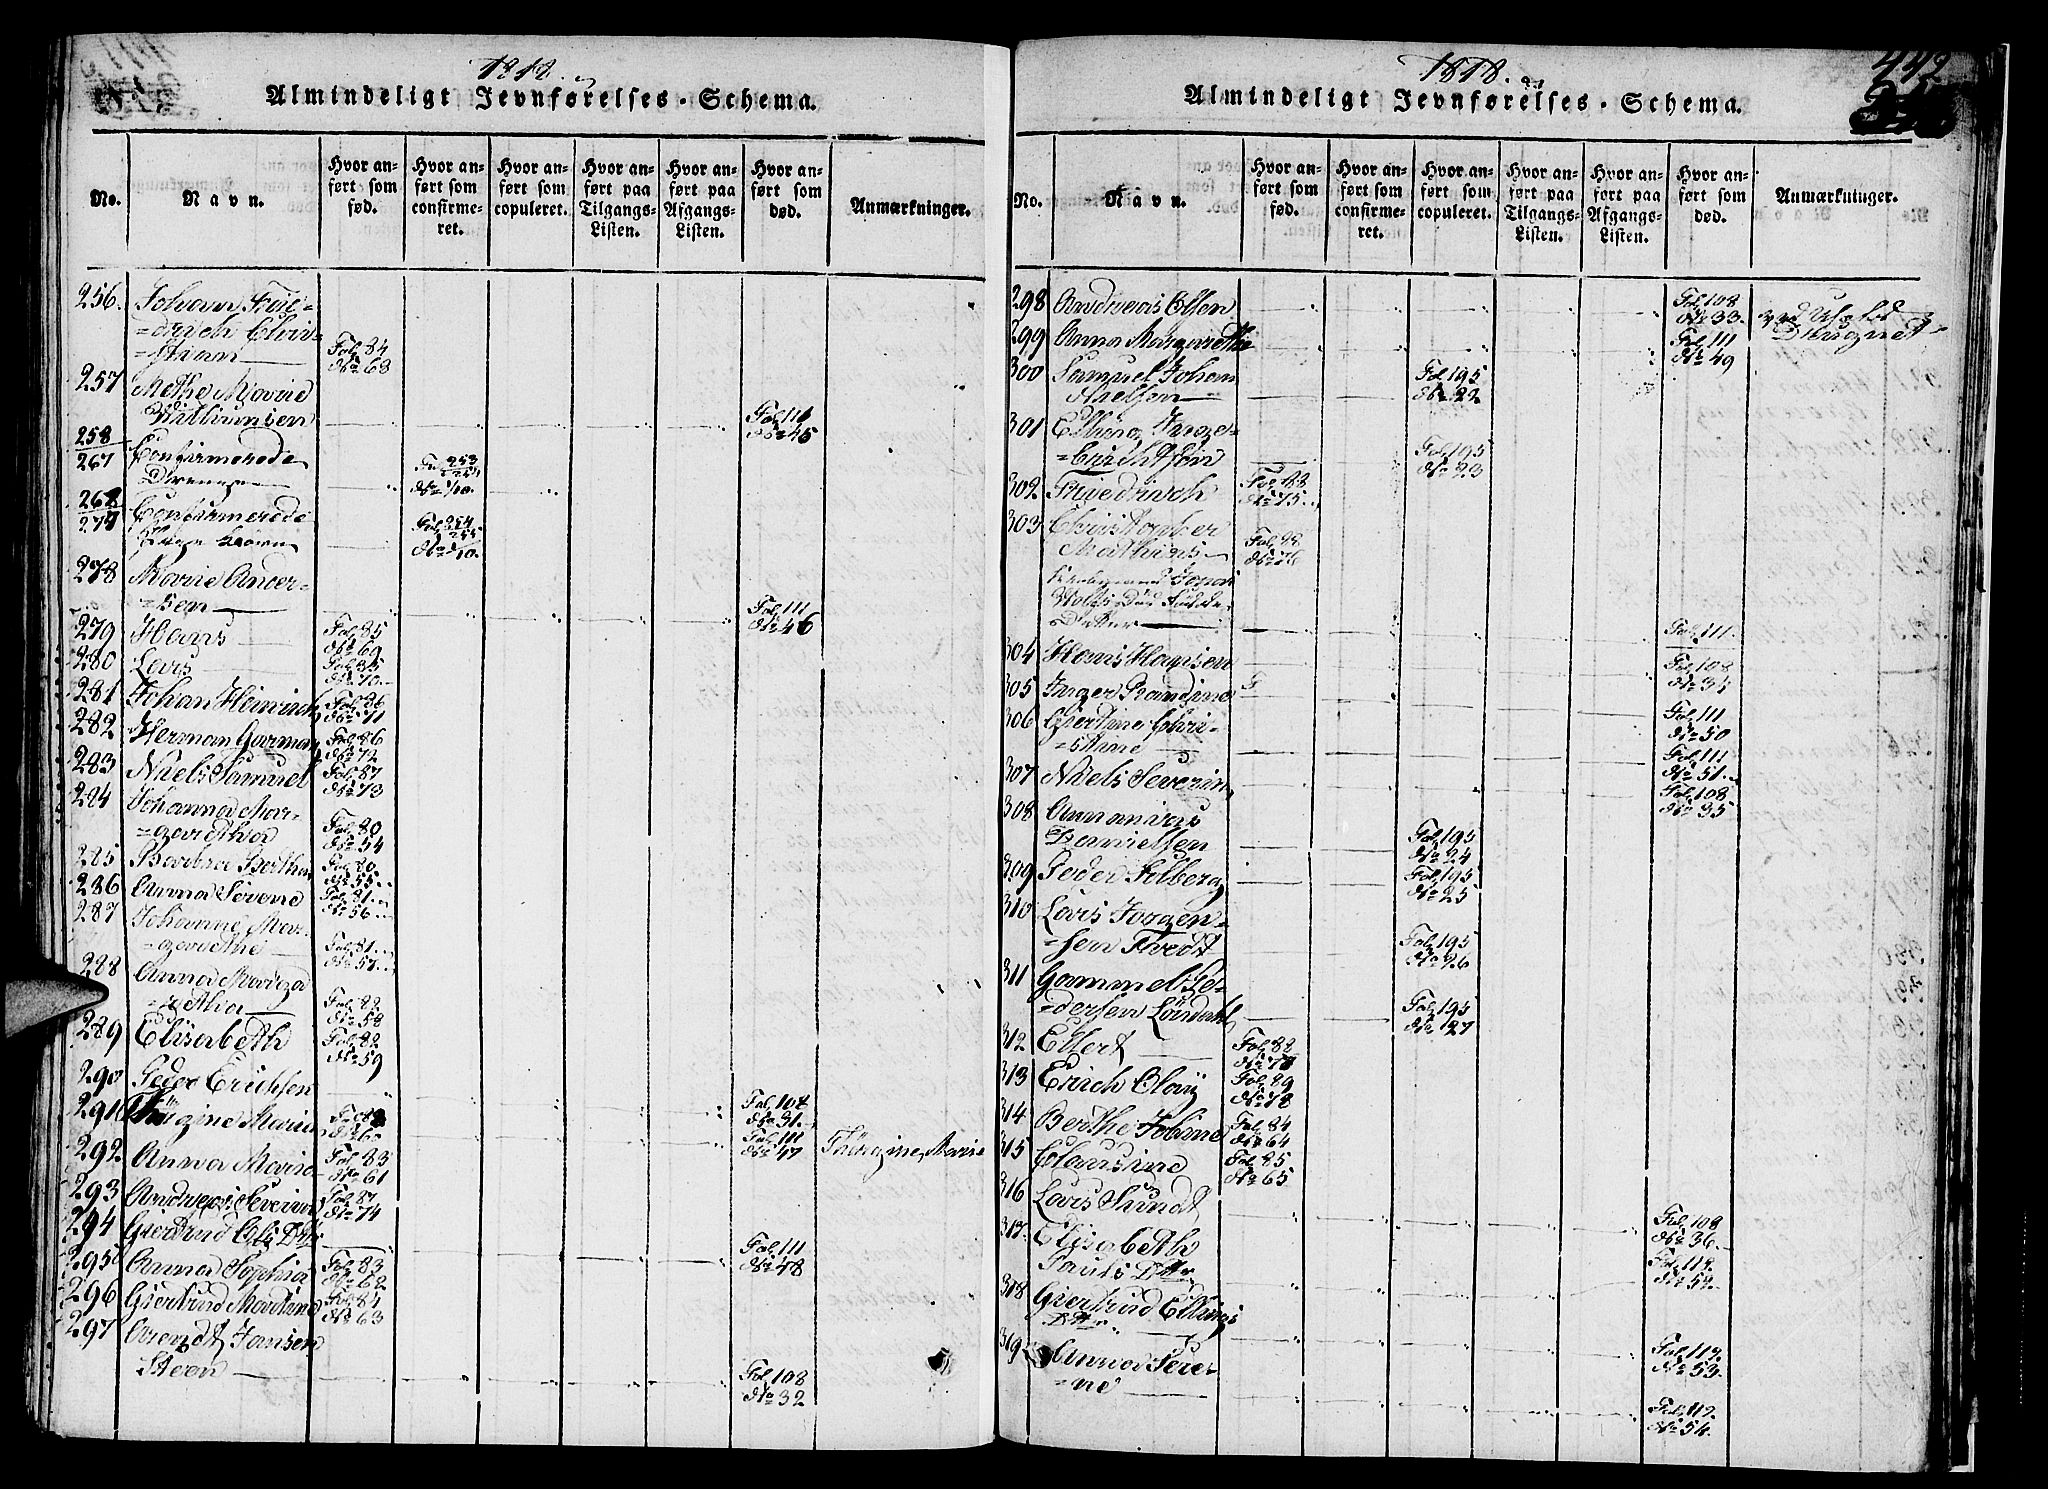 1818.
Almindeligt Jevnførelses-Schema.
No.
Navn.
Hvor anført som fød.
Hvor anført som confirmeret.
Hvor anført som copuleret.
Hvor anført paa Tilgangs-Listen.
Hvor anført paa Afgangs-Listen.
Hvor anført som død.
Anmærkninger.
256. Johann Frie-
=drich Chri-
=stian Fol. 84 No 68
257 Methe Marie
Fol. 111 No 45
258/267 Confirmerede
Drenge Fol 253/254 No 1/10.
268/277 Confirmerede
Fol 254/255 No 1/10.
278 Marie Ander-
=sen Fol. 111 No 46
279 Hans Fol. 85 No 69
280 Lars Fol. 85 No 70.
281 Johan Heinrich Fol. 86 No 71
282 Herman Garman Fol. 86 No 72
283 Niels Samuel Fol. 87 No 73
284 Johanna Mar-
=garetha Fol. 80 No 54
285 Barbra Bertha Fol. 80. No 55.
286 Anna Severine Fol. 81. No 56
287 Johanne Mar-
=grethe Fol. 81. No 57.
288 Anna Marga-
=retha Fol. 82 No 58
289 Elisabeth Fol. 82 No 59
290 Peder Erichsen Fol. 108 No 31.
291 Thüregine Marie No 60 Fol. 111 No 47 Thüregine Marie
292. Anna Marie Fol. 83 No 61
293 Andreas Severin Fol. 87 No 74
294 Giertrud Ols Dtr Fol. 111 No 48
295 Anna Sophia Fol. 83 No 62
296 Giertrud Martine Fol. 84 No 63
297 Arendt Jansen
Steen Fol. 108 No 32
1818.
442
Almindeligt Jevnførelses-Schema.
No.
Navn.
Hvor anført som fød.
Hvor anført som confirmeret.
Hvor anført som copuleret.
Hvor anført paa Tilgangs-Listen.
Hvor anført paa Afgangs-Listen.
Hvor anført som død.
Anmærkninger.
298 Andreas Olsen Fol. 108 No 33. ved
299 Anna Margrethe Fol. 111 No 49
300 Samuel Johan
Nielsen Fol. 195 No 22
301 Elling Inge-
=brichtsen Fol. 195 No 23
302 Friedrich Fol. 88 No 75.
303 Christopher
Mathias Fol. 88. No 76
Fol. 111.
304 Hans Hansen Fol. 108 No 34
305 Inger Randine Fol. 111 No 50
306 Giertine Chri-
=stine Fol. 111 No 51.
307 Niels Severin Fol. 108 No 35
308 Ananias
Danielsen Fol. 195 No 24
309 Peder Solberg Fol. 195 No 25
310 Lars Jorgen-
=sen Tvedt Fol. 195 No 26
311 Gammel Pe-
=dersen Fol. 195 No 27
312 Ellert Fol. 88 No 77
313 Erich Olaij Fol. 89 No 78
314 Berthe Joline Fol. 84 No 64
315 Clausine Fol. 85 No 65
316 Lars Sundt Fol. 108 No 36.
317. Elisabeth
Pauls Dtr Fol. 112. No 52.
318 Giertrud Ellings
Dtr Fol. 112. No 53.
319 Anna Seve-
=ne Fol. 112. No 54.